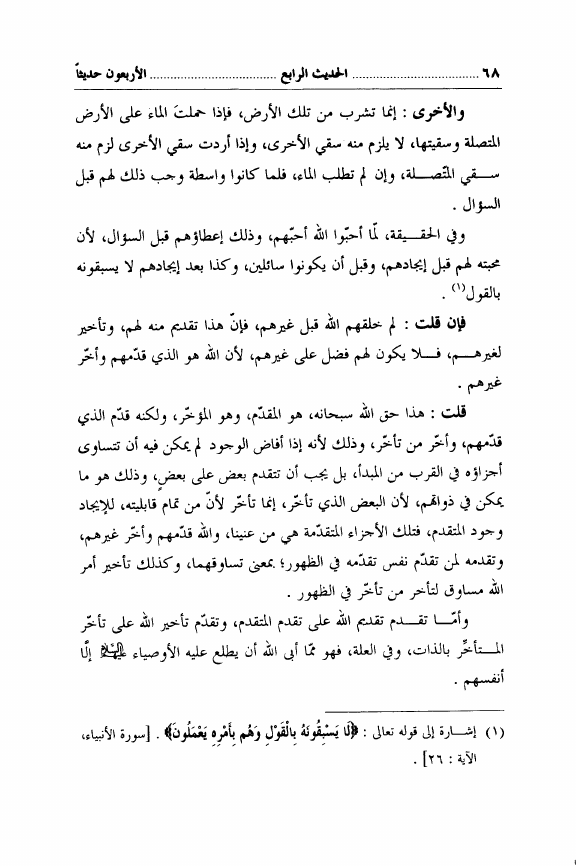 ٦٨ ...................................... الحديث الرابع ...................................... الأربعون حديثاً
والأخرى : إنما تشرب من تلك الأرض، فإذا حملتَ الماء على الأرض
المتصلة وسقيتها، لا يلزم منه سقي الأخرى، وإذا أردت سقي الأخرى لزم منه
سـقي المتّصـلة، وإن لم تطلب الماء، فلما كانوا واسطة وجب ذلك لهم قبل
السؤال .
وفي الحقـيقة، لمّا أحبّوا الله أحبّهم، وذلك إعطاؤهم قبل السؤال، لأن
محبته لهم قبل إيجادهم، وقبل أن يكونوا سائلين، وكذا بعد إيجادهم لا يسبقونه
بالقول(١) .
فإن قلت : لم خلقهم الله قبل غيرهم، فإنّ هذا تقديم منه لهم، وتأخير
لغيرهـم، فـلا يكون لهم فضل على غيرهم، لأن الله هو الذي قدّمهم وأخّر
غيرهم .
قلت : هذا حق الله سبحانه، هو المقدّم، وهو المؤخّر، ولكنه قدّم الذي
قدّمهم، وأخّر من تأخّر، وذلك لأنه إذا أفاض الوجود لم يمكن فيه أن تتساوى
أجزاؤه في القرب من المبدأ، بل يجب أن تتقدم بعض على بعضٍ، وذلك هو ما
يمكن في ذواتهم، لأن البعض الذي تأخّر، إنما تأخّر لأنّ من تمام قابليته، للإيجاد
وجود المتقدم، فتلك الأجزاء المتقدّمة هي من عنينا، والله قدّمهم وأخّر غيرهم،
وتقدمه لمن تقدّم نفس تقدّمه في الظهور؛ بمعنى تساوقهما، وكذلك تأخير أمر
الله مساوق لتأخر من تأخّر في الظهور .
وأمّـا تقـدم تقديم الله على تقدم المتقدم، وتقدّم تأخير الله على تأخّر
المـتأخّرِ بالذات، وفي العلة، فهو ممّا أبى الله أن يطلع عليه الأوصياء عليهم السلام إلّا
أنفسهم .
(١) إشـارة إلى قوله تعالى : ﴿لَا يَسْبِقُونَهُ بِالْقَوْلِ وَهُم بِأَمْرِهِ يَعْمَلُونَ﴾ . [سورة الأنبياء،
الآية : ٢٦] .